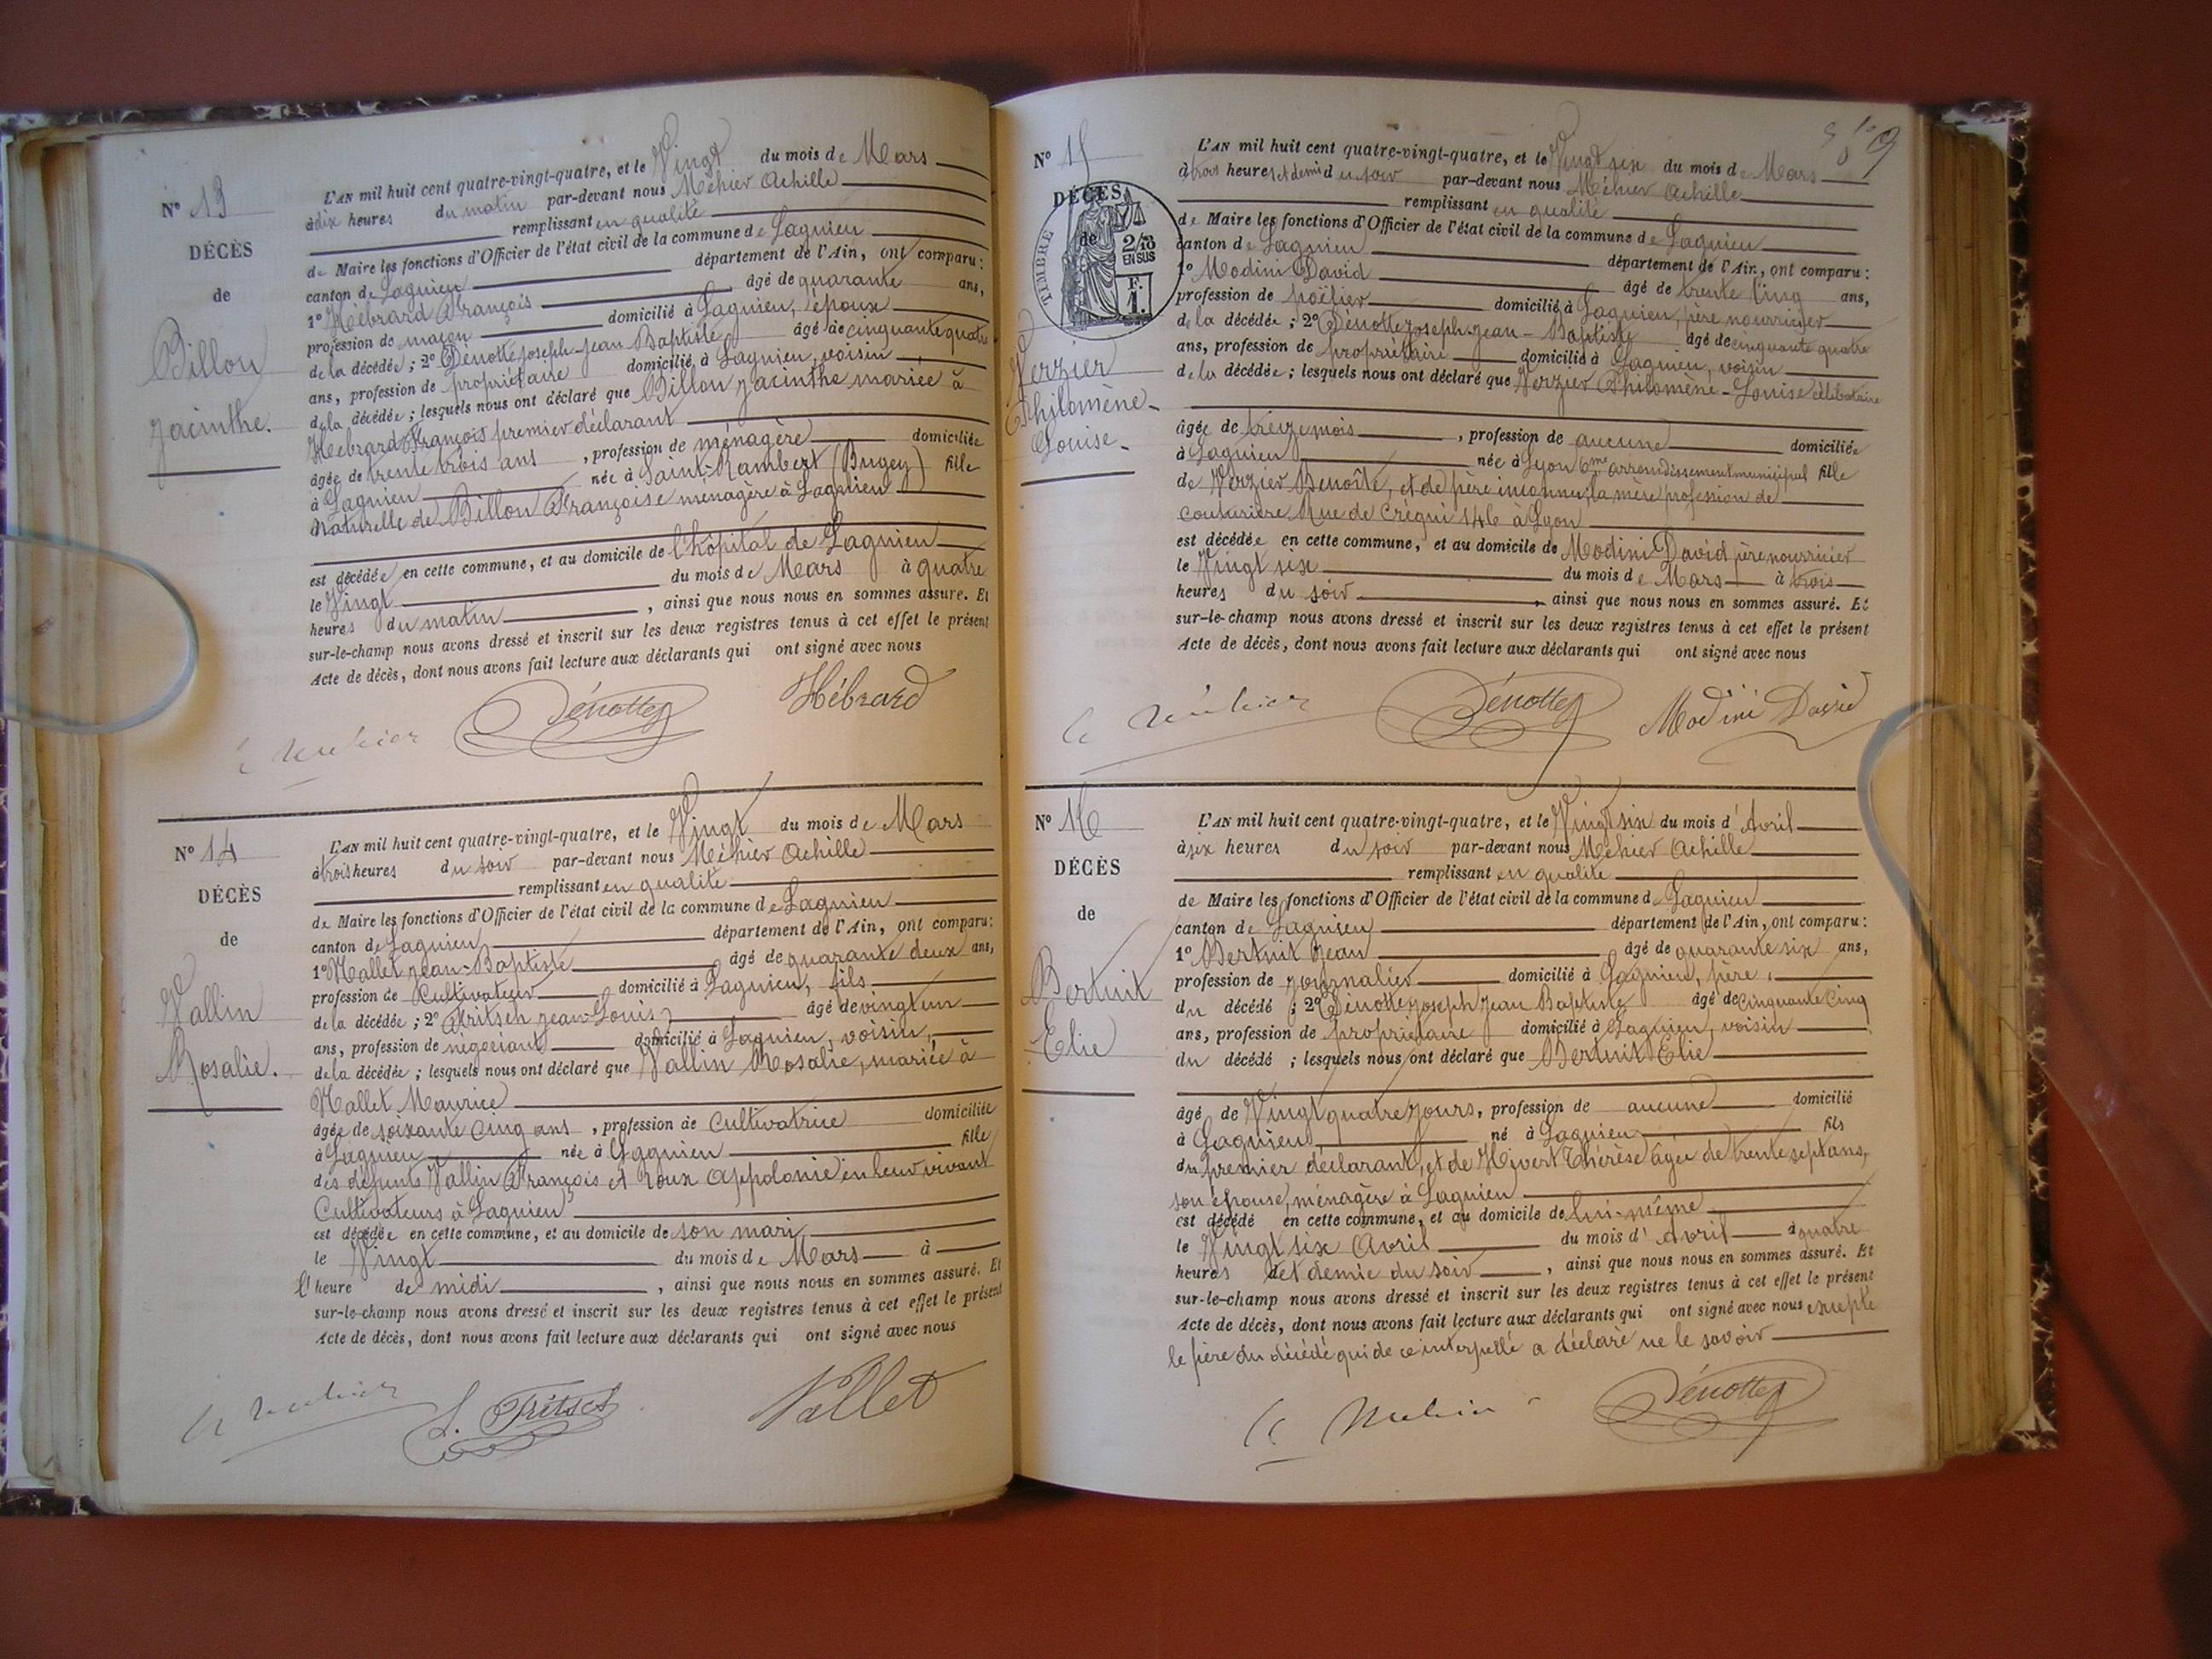 N° 13
DÉCÈS
de
Billon
Jacinthe.
L'AN mil huit cent quatre-vingt-quatre, et le Vingt du mois de Mars
à dix heures du matin par-devant nous Méhier Achille
remplissant en qualité
de Maire les fonctions d'Officier de l'état civil de la commune de Lagnieu
canton de Lagnieu département de l'Ain, ont comparu:
1° Hébrard François âgé de quarante ans,
profession de maçon domicilié à Lagnieu, époux
de la décédée; 2° Dénotte Joseph-Jean Baptiste âgé de cinquante quatre
ans, profession de propriétaire domicilié à Lagnieu, voisin
de la décédée; lesquels nous ont déclaré que Billon Jacinthe mariée à
Hébrard François premier déclarant
âgée de trente trois ans, profession de ménagère domiciliée
à Lagnieu née à Saint-Rambert (Bugey) fille
naturelle de Billon Françoise ménagère à Lagnieu
est décédée en cette commune, et au domicile de l'hôpital de Lagnieu
le Vingt du mois de Mars à quatre
heures du matin, ainsi que nous nous en sommes assuré. Et
sur-le-champ nous avons dressé et inscrit sur les deux registres tenus à cet effet le présent
Acte de décès, dont nous avons fait lecture aux déclarants qui ont signé avec nous
Méhier Dénotte Hébrard
N° 14
DÉCÈS
de
Vallin
Rosalie.
L'AN mil huit cent quatre-vingt-quatre, et le Vingt du mois de Mars
à trois heures du soir par-devant nous Méhier Achille
remplissant en qualité
de Maire les fonctions d'Officier de l'état civil de la commune de Lagnieu
canton de Lagnieu département de l'Ain, ont comparu:
1° Vallet Jean-Baptiste âgé de quarante deux ans,
profession de Cultivateur domicilié à Lagnieu, fils
de la décédée; 2° Fritsch Jean Louis âgé de vingt un
ans, profession de négociant domicilié à Lagnieu, voisin,
de la décédée; lesquels nous ont déclaré que Vallin Rosalie, mariée à
Vallet Maurice
âgée de soixante cinq ans, profession de Cultivatrice domiciliée
à Lagnieu née à Lagnieu fille
des défunts Vallin François et Roux Appolonie en leur vivant
Cultivateurs à Lagnieu
est décédée en cette commune, et au domicile de son mari,
le Vingt du mois de Mars à
l'heure de midi, ainsi que nous nous en sommes assuré. Et
sur-le-champ nous avons dressé et inscrit sur les deux registres tenus à cet effet le présent
Acte de décès, dont nous avons fait lecture aux déclarants qui ont signé avec nous
Méhier Fritsch Vallet
9
N° 15
DÉCÈS
de
TIMBRE
2/10
EN SUS
F.
1.
Verzier
Philomène-
Louise-
L'AN mil huit cent quatre-vingt-quatre, et le Vingt six du mois de Mars
à trois heures et demi du soir par-devant nous Méhier Achille
remplissant en qualité
de Maire les fonctions d'Officier de l'état civil de la commune de Lagnieu
canton de Lagnieu département de l'Ain, ont comparu:
1° Modini David âgé de trente cinq ans,
profession de poëlier domicilié à Lagnieu, père nourricier
de la décédée; 2° Dénotte Joseph-Jean-Baptiste âgé de cinquante quatre
ans, profession de propriétaire domicilié à Lagnieu, voisin
de la décédée; lesquels nous ont déclaré que Verzier Philomène-Louise célibataire
âgée de treize mois, profession de aucune domiciliée
à Lagnieu née à Lyon 6me arrondissement municipal fille
de Verzier Benoîte, et de père inconnu, la mère profession de
couturière Rue de Créqui 146 à Lyon
est décédée en cette commune, et au domicile de Modini David père nourricier
le Vingt six du mois de Mars à trois
heures du soir, ainsi que nous nous en sommes assuré. Et
sur-le-champ nous avons dressé et inscrit sur les deux registres tenus à cet effet le présent
Acte de décès, dont nous avons fait lecture aux déclarants qui ont signé avec nous
Méhier Dénotte Modini David
N° 16
DÉCÈS
de
Bertuit
Elie
L'AN mil huit cent quatre-vingt-quatre, et le Vingt six du mois d'Avril
à six heures du soir par-devant nous Méhier Achille
remplissant en qualité
de Maire les fonctions d'Officier de l'état civil de la commune de Lagnieu
canton de Lagnieu département de l'Ain, ont comparu:
1° Bertuit Jean âgé de quarante six ans,
profession de journalier domicilié à Lagnieu, père,
du décédé; 2° Dénotte Joseph Jean Baptiste âgé de cinquante cinq
ans, profession de propriétaire domicilié à Lagnieu, voisin
du décédé; lesquels nous ont déclaré que Bertuit Elie
âgé de Vingt quatre jours, profession de aucune domicilié
à Lagnieu, né à Lagnieu fils
du premier déclarant, et de Hivert Thérèse âgée de trente sept ans,
son épouse, ménagère à Lagnieu
est décédé en cette commune, et au domicile de lui-même
le Vingt six Avril du mois d'Avril à quatre
heures et demie du soir, ainsi que nous nous en sommes assuré. Et
sur-le-champ nous avons dressé et inscrit sur les deux registres tenus à cet effet le présent
Acte de décès, dont nous avons fait lecture aux déclarants qui ont signé avec nous excepté
le père du décédé qui de ce interpellé a déclaré ne le savoir
Méhier Dénotte